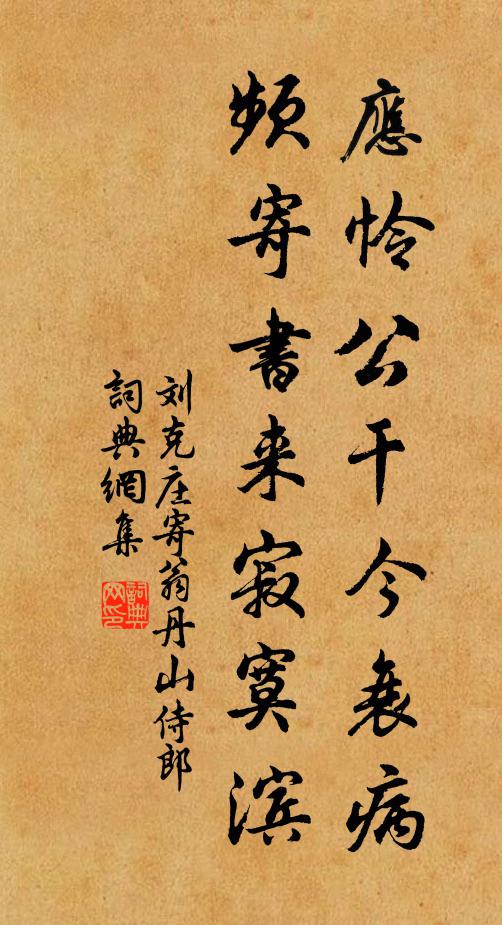 應怜公干今衰病
頻寄書来寂寞滨
刘克庄寄翁丹山侍郎
詞典網集
詞典
网印